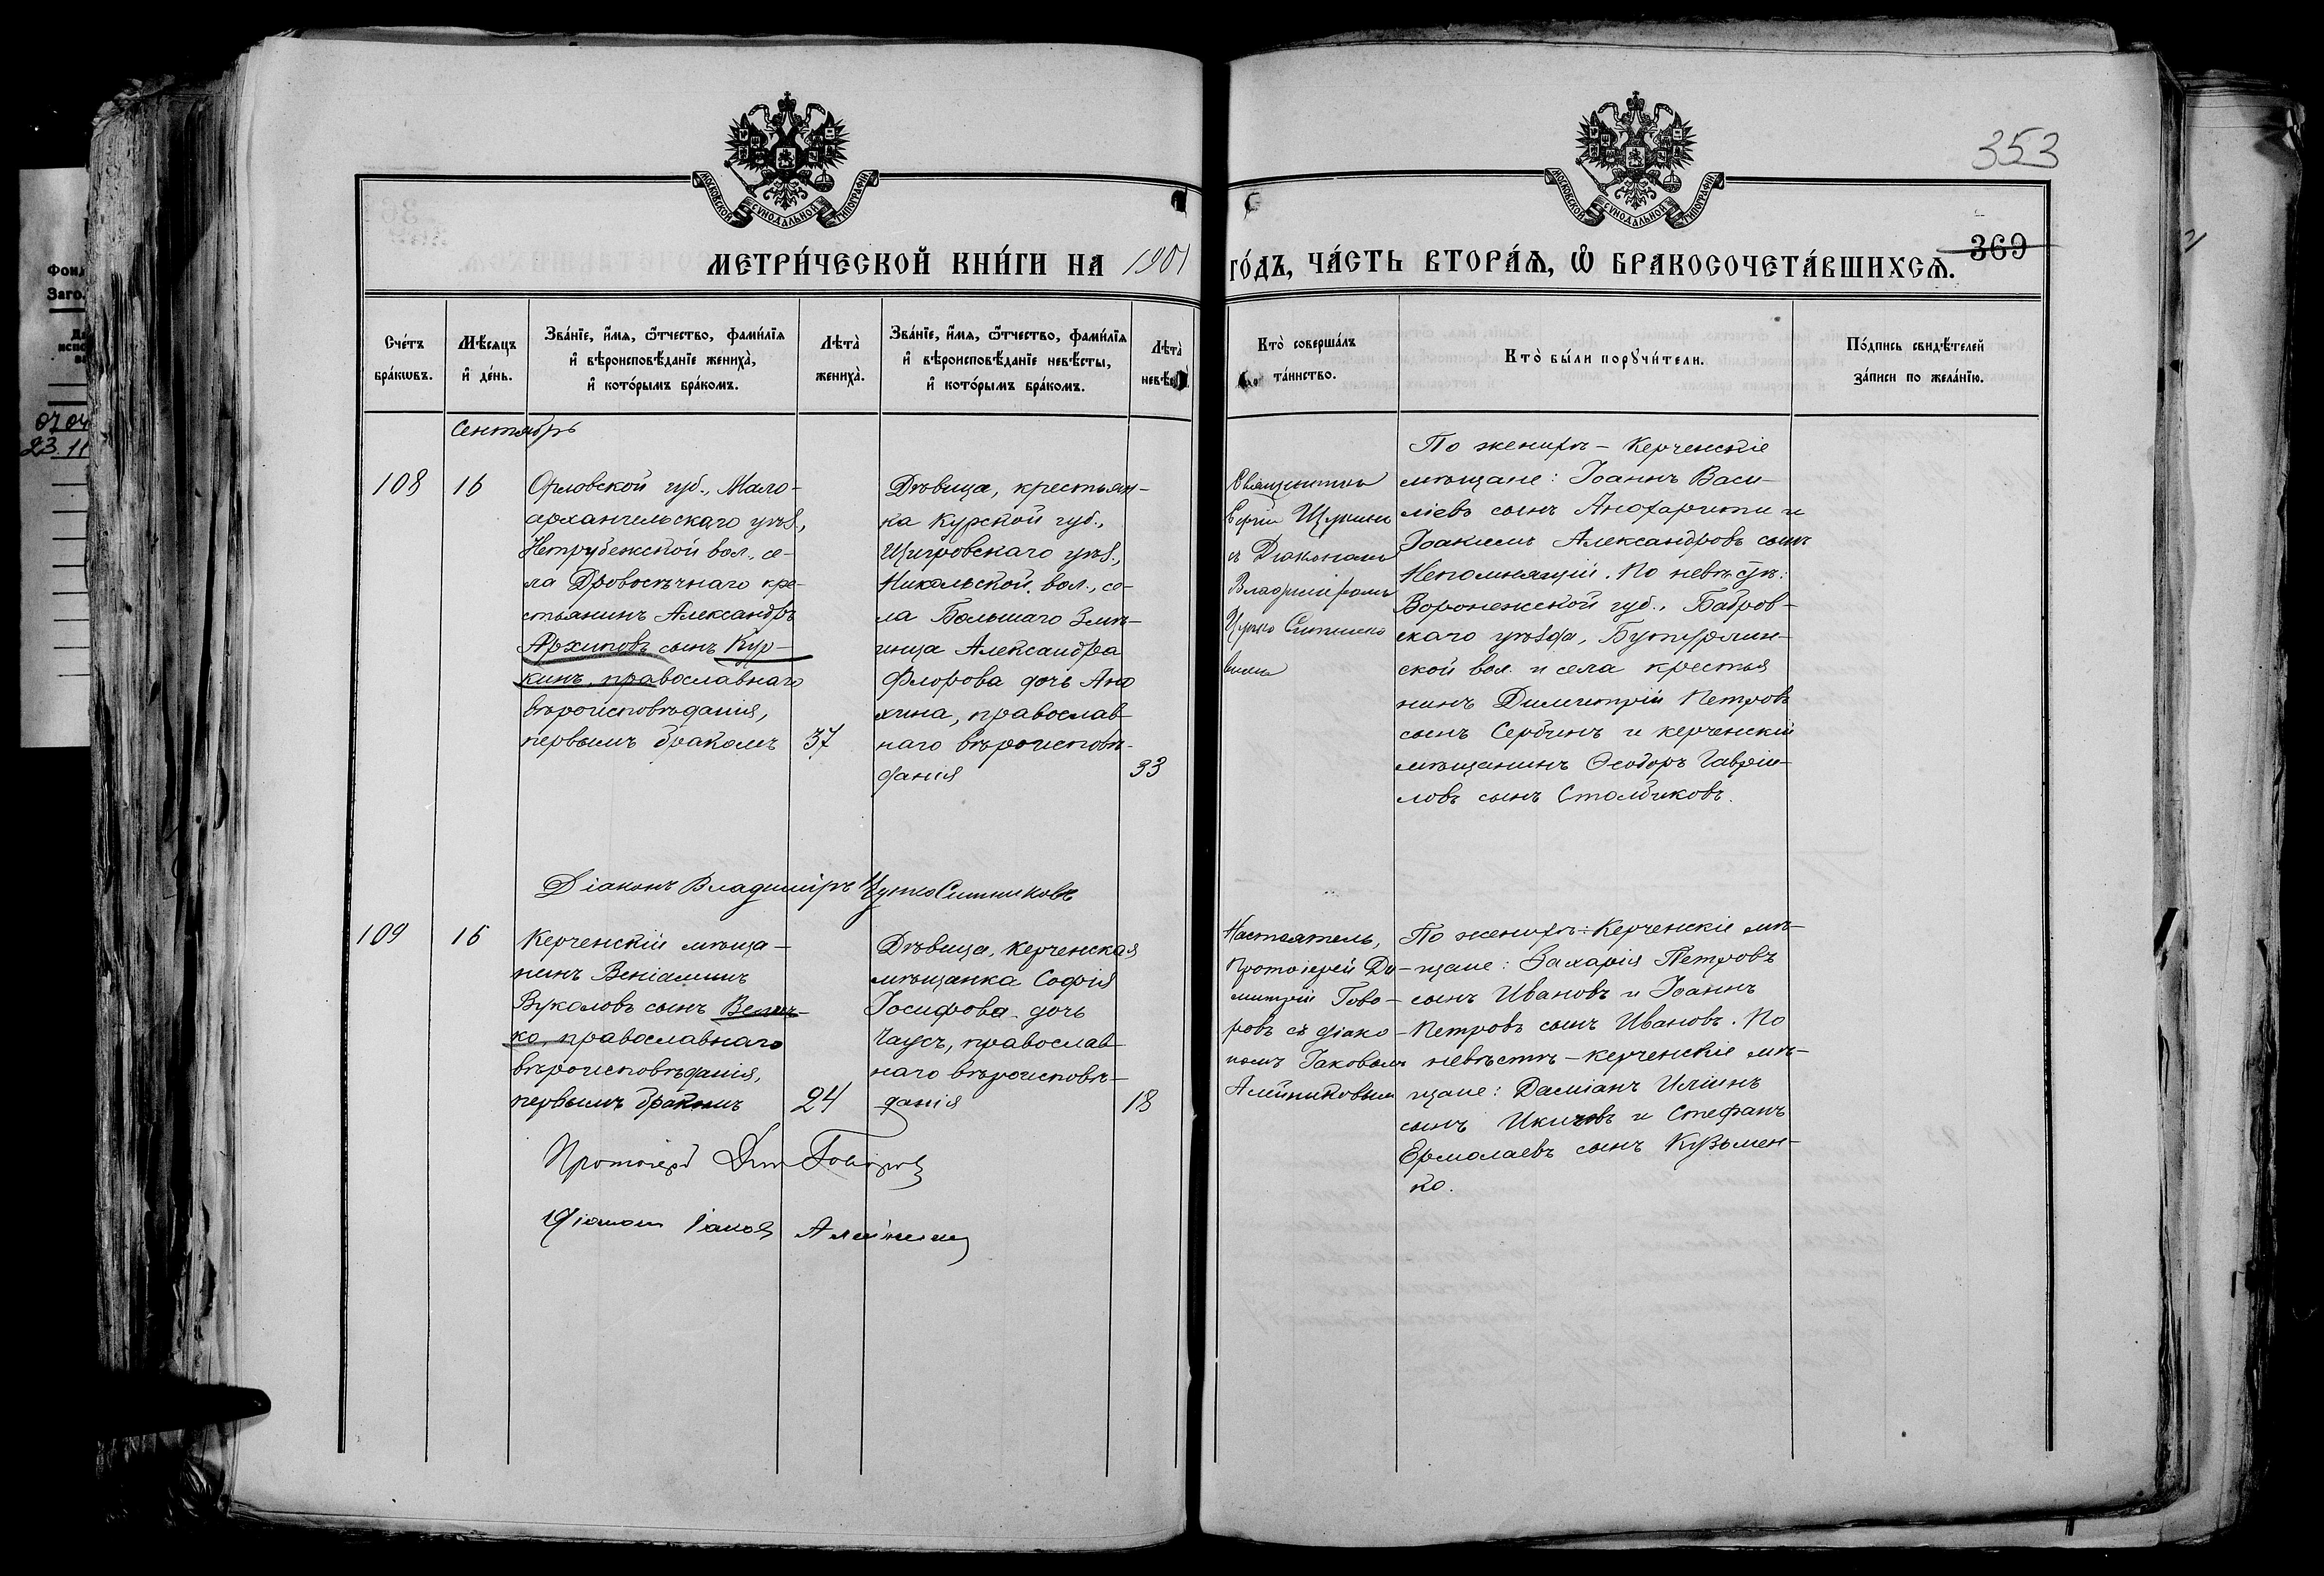 353
369
МОСКОВСКОЙ СѴНОДАЛЬНОЙ ТИПОГРАФІИ
МОСКОВСКОЙ СѴНОДАЛЬНОЙ ТИПОГРАФІИ
МЕТРИ́ЧЕСКОЙ КНИ́ГИ НА 1901
ГО́ДЪ, ЧА́СТЬ ВТОРА́Ѧ, Ѽ БРАКОСОЧЕТА́ВШИХСѦ.
Сче́тъ
бра́кѡвъ.
Мѣ́сѧцъ
и҆ де́нь.
Зва́нїе, и҆́мѧ, ѻ҆́тчество, фами́лїѧ
и҆ вѣроисповѣ́данїе жениха̀,
и҆ кото́рымъ бра́комъ.
Лѣта̀
жениха̀.
Зва́нїе, и҆́мѧ, ѻ҆́тчество, фами́лїѧ
и҆ вѣроисповѣ́данїе невѣ́сты,
и҆ кото́рымъ бра́комъ.
Лѣта̀
невѣ́
Кто̀ соверша́лъ
та́инство.
Кто̀ бы́ли порꙋчи́тели.
По́дпись свидѣ́телей
за́писи по жела́нїю.
Сентябрь
108
16
Орловской губ., Мало-
архангельскаго уѣз.,
Нетрубежской вол., се-
ла Дровосѣчнаго кре-
стьянинъ Александръ
Архиповъ сынъ Кур-
кинъ, православнаго
вѣроисповѣданія,
первымъ бракомъ
37
Дѣвица, крестьян-
ка Курской губ.,
Щигровскаго уѣз.,
Никольской вол., се-
ла Большаго Змѣ-
инца Александра
Флорова дочь Ано
хина, православ-
наго вѣроисповѣ-
данія
33
Священникъ
Сергій
съ Діакономъ
Владиміромъ
По женихѣ - Керченскіе
мѣщане: Іоаннъ Васи-
ліевъ сынъ и
Іоакимъ Александровъ сынъ
Непомнящій. По невѣстѣ:
Воронежской губ., Бобров-
скаго уѣзда, Бутурлин-
ской вол. и села крестья
нинъ Димитрій Петровъ
сынъ Сербинъ и керченскій
мѣщанинъ Ѳеодоръ Гаврии-
ловъ сынъ Столбиковъ.
Діаконъ Владиміръ Ситниковъ
109
16
Керченскій мѣща-
нинъ Веніаминъ
Вуколовъ сынъ Велич-
ко, православнаго
вѣроисповѣданія,
первымъ бракомъ
24
Дѣвица, керченская
мѣщанка Софія
Іосифова дочь
Чаусъ, православ-
наго вѣроисповѣ-
данія
18
Настоятель,
Протоіерей Ди-
митрій Гово-
ровъ съ діако-
номъ Іаковомъ
Алейниковымъ
По женихѣ: Керченскіе мѣ-
щане: Захарія Петровъ
сынъ Ивановъ и Іоаннъ
Петровъ сынъ Ивановъ. По
невѣстѣ - керченскіе мѣ-
щане: Даміанъ Иліинъ
сынъ и Стефанъ
Ермолаевъ сынъ Кузьмен-
ко.
Протоіерей Дим Говоровъ
Діаконъ Іаковъ Алейниковъ